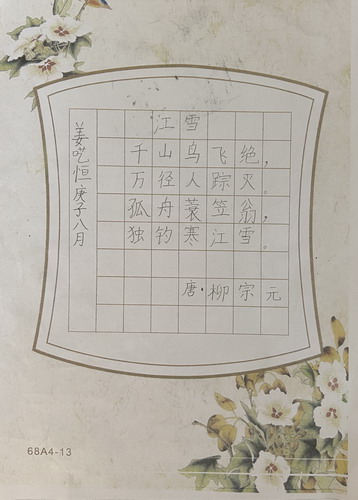 江雪
千山鸟飞绝，
万径人踪灭。
孤舟蓑笠翁，
独钓寒江雪。
唐·柳宗元
姜呓恒庚子八月
68A4-13